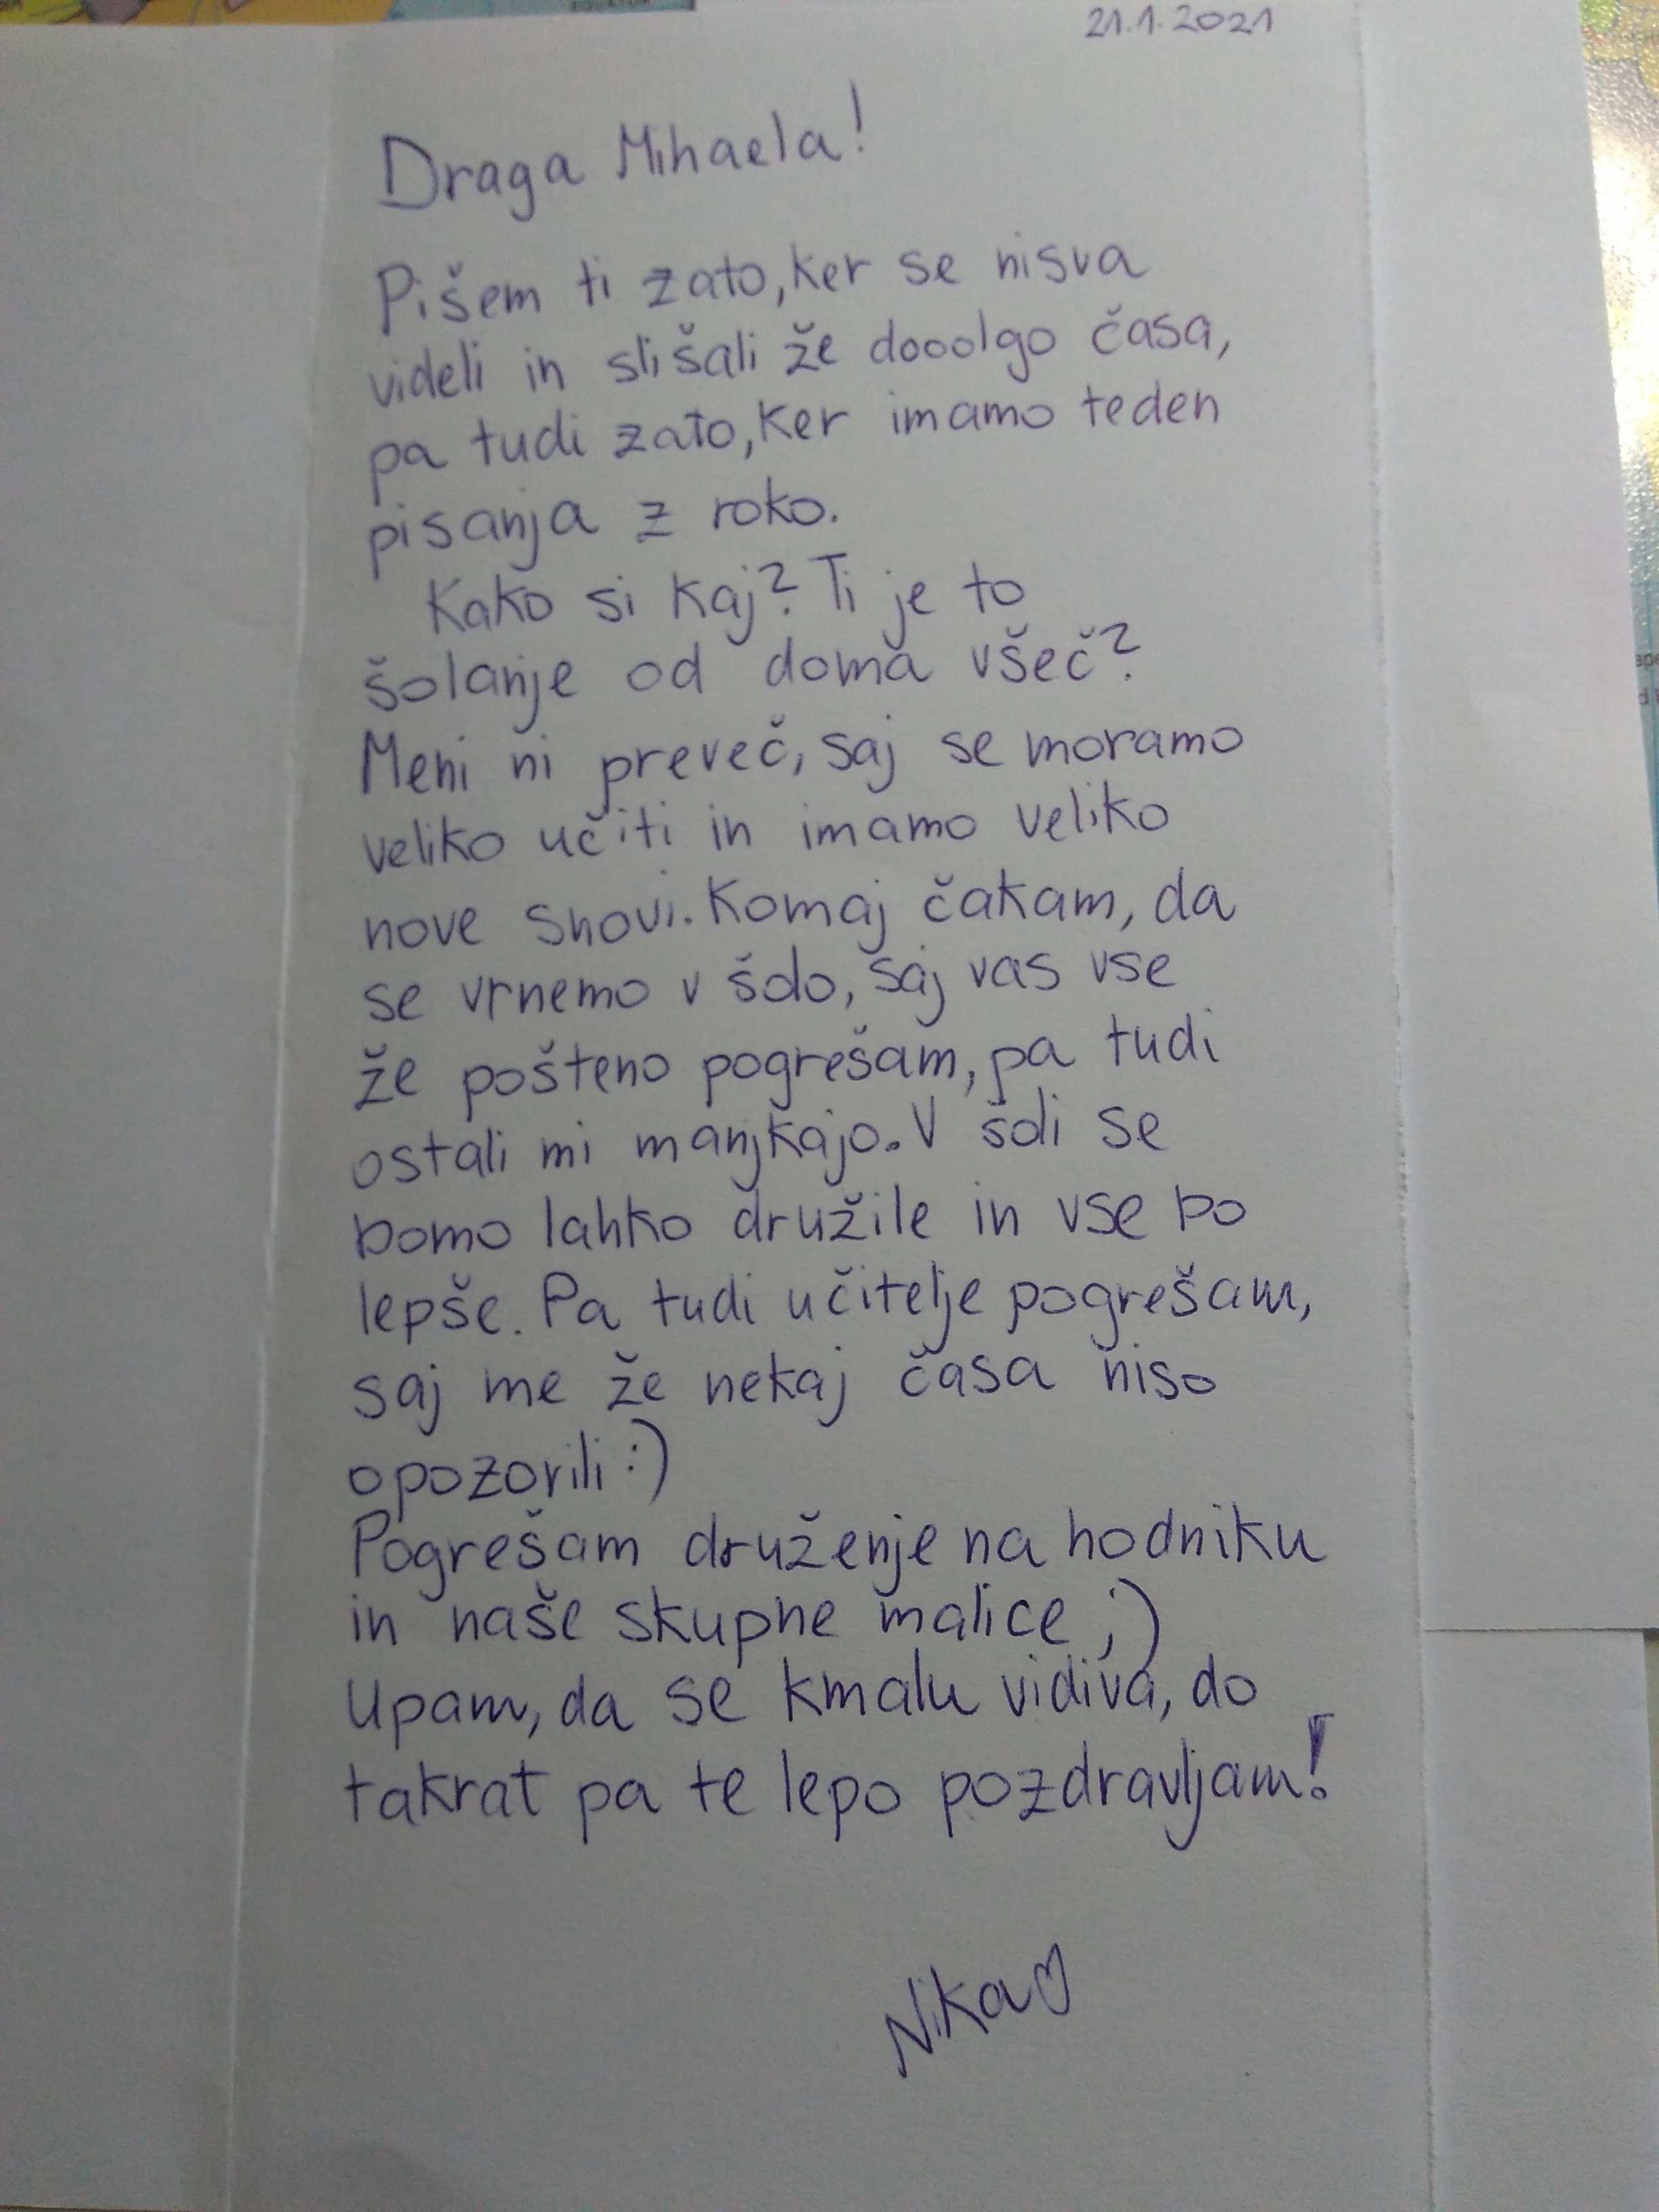 EQUATOR
21.1.2021
Draga Mihaela!
Pišem ti zato, ker se nisva
videli in slišali že dooolgo časa,
pa tudi zato, ker imamo teden
pisanja z roko.
Kako si kaj? Ti je to
šolanje od doma všeč?
Meni ni preveč, saj se moramo
veliko učiti in imamo veliko
nove snovi. Komaj čakam, da
se vrnemo v šolo, saj vas vse
že pošteno pogrešam, pa tudi
ostali mi manjkajo. V šoli se
bomo lahko družile in vse bo
lepše. Pa tudi učitelje pogrešam,
saj me že nekaj časa niso
opozorili :)
Pogrešam druženje na hodniku
in naše skupne malice ;)
Upam, da se kmalu vidiva, do
takrat pa te lepo pozdravljam!
Nika♡